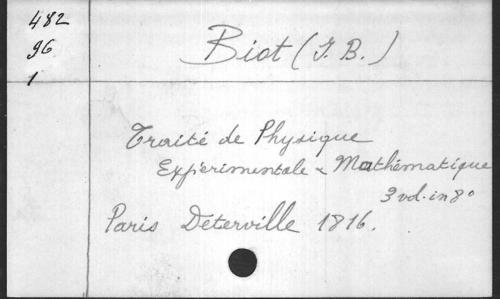 482
96
1
Biot (J. B.)
Traité de Physique
Expérimentale & Mathématique
3 vol. in 8°
Paris Déterville 1816.